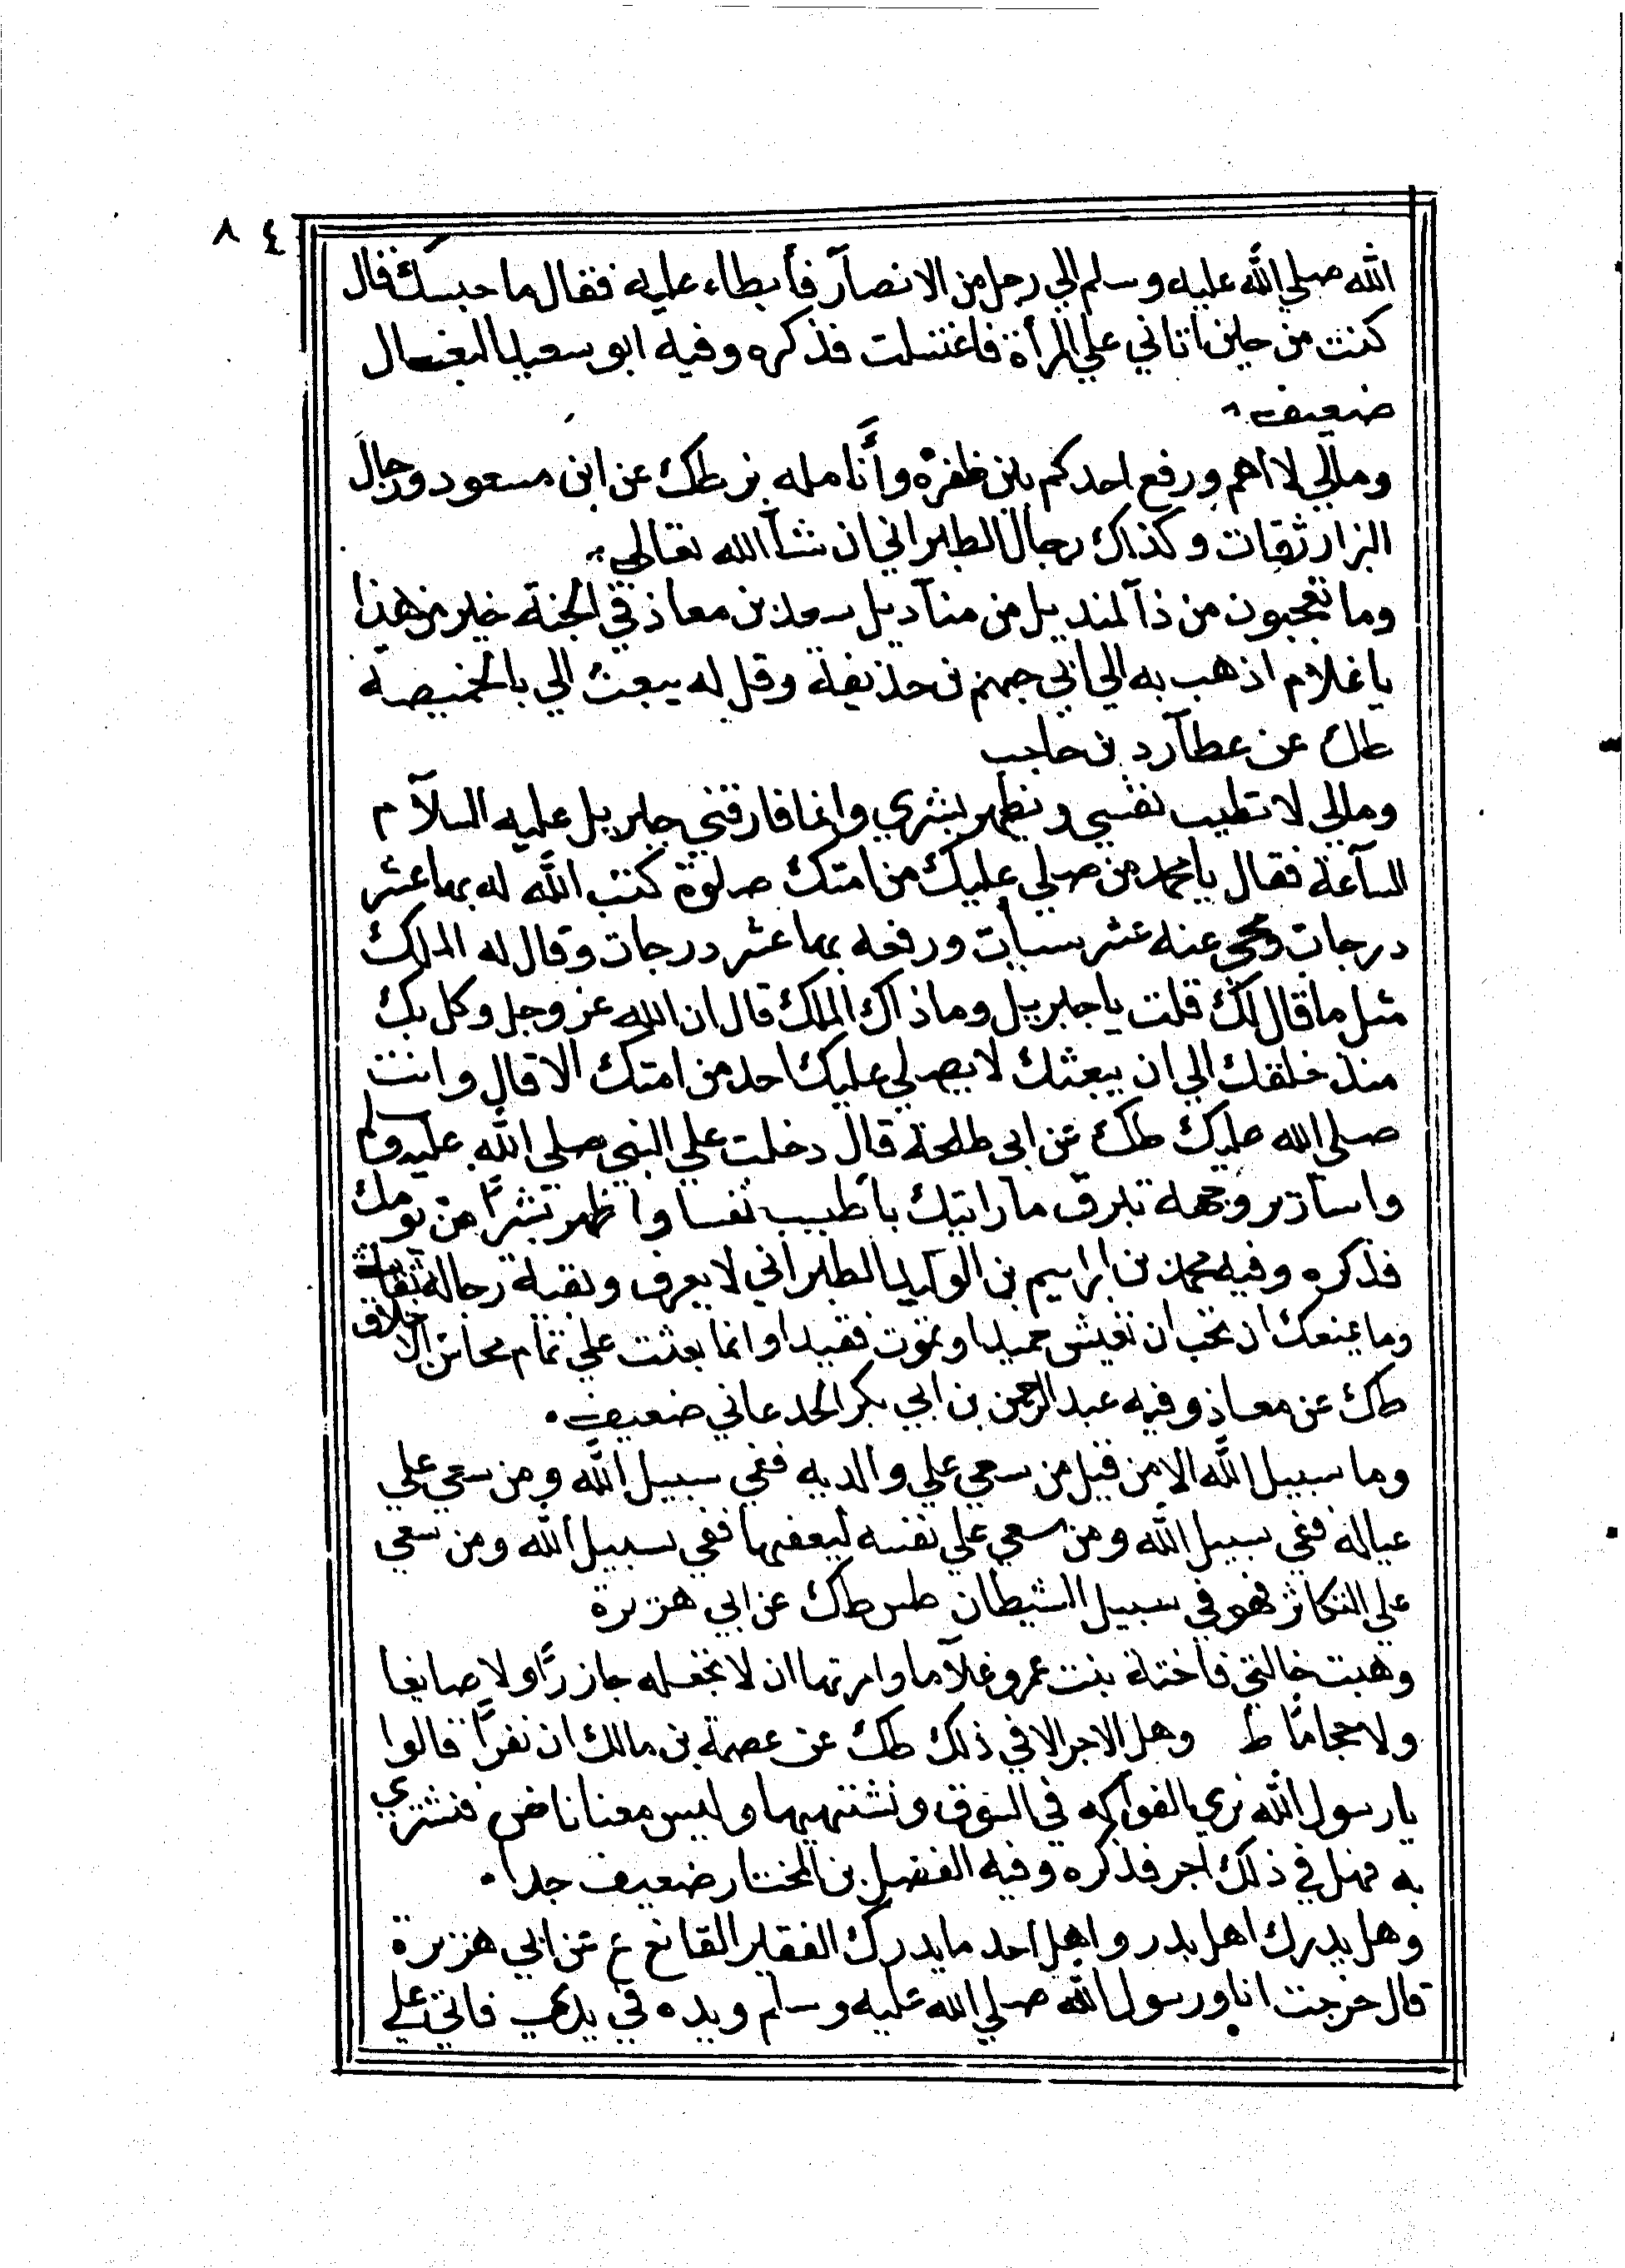 ٨٤
الله صلي الله عليه وسلم الي رجل من الانصآر فأبطاء عليه فقال ما حبسك قال
كنت من حين اتاني علي المرأة فاغتسلت فذكره وفيه ابو سعيد البغسال
ضعيف
ومالي لا اهم ورفع احدكم بين ظفره وأنامله بز طك عن ابن مسعود ورجال
البزار ثقات وكذاك رجال الطبراني ان شآ الله تعالي
وما تعجبون من ذآ لمنديل من منآديل سعد بن معاذ في الجنة خير من هذا
يا غلام اذهب به الي ابي جهم بن حذيفة وقل له يبعث الي بالخميصة
طك عن عطآرد بن حاجب
ومالي لا تطيب نفسي ويظهر بشري وانما فارقني جبريل عليه السلآم
السآعة فقال يا محمد من صلي عليك من امتك صلوة كتب الله له بها عشر
درجات ومحي عنه عشر سيأت ورفعه بها عشر درجات وقال له الملك
مثل ما قال لك قلت يا جبريل وما ذاك الملك قال ان الله عز وجل وكل بك
منذ خلقك الي ان يبعثك لا يصلي عليك احد من امتك الا قال وانت
صلي الله عليك طك عن ابي طلحة قال دخلت علي النبي صلي الله عليه وسلم
واسآرير وجهه تبرق ما رايتك باطيب نفسا واظهر بشرا من يومك
فذكره وفيه محمد بن ابراهيم بن الوليد الطبراني لا يعرف وبقية رجاله ثقات
وما يمنعك ان تحب ان تعيش حميدا وتموت فقيدا وانما بعثت علي تمام محاسن الاخلاق
طك عن معاذ وفيه عبد الرحمن بن ابي بكر الجدعاني ضعيف
وما سبيل الله الا من قتل من سعي علي والديه ففي سبيل الله ومن سعي علي
عياله ففي سبيل الله ومن سعي علي نفسه ليعفها ففي سبيل الله ومن سعي
علي التكاثر فهو في سبيل الشيطان طس طك عن ابي هريرة
وهبت خالتي فاختة بنت عمرو غلآما وامرتها ان لا تجعله جازرًا ولا صايغا
ولا حجامًا ط وهل الاجر الا في ذلك طك عن عصمة بن مالك ان نفرًا قالوا
يا رسول الله نري الفواكه في السوق ونشتهيها وليس معنا ناض فنشتري
به فهل في ذلك اجر فذكره وفيه الفضل بن المختار ضعيف جدا
وهل يدرك اهل بدر واهل احد ما يدرك الفقير القانع ع عن ابي هريرة
قال خرجت انا ورسول الله صلي الله عليه وسلم ويده في يدي فاتي علي